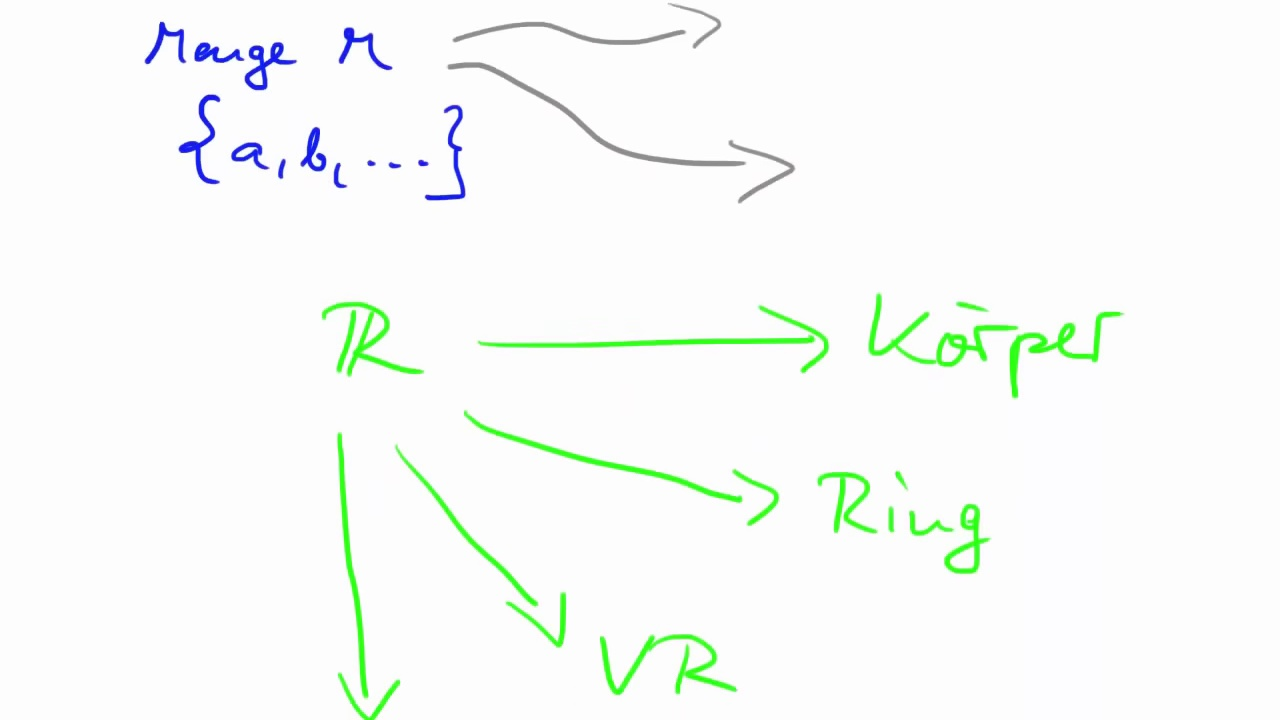 Menge M
{a, b, ...}
ℝ
Körper
Ring
VR